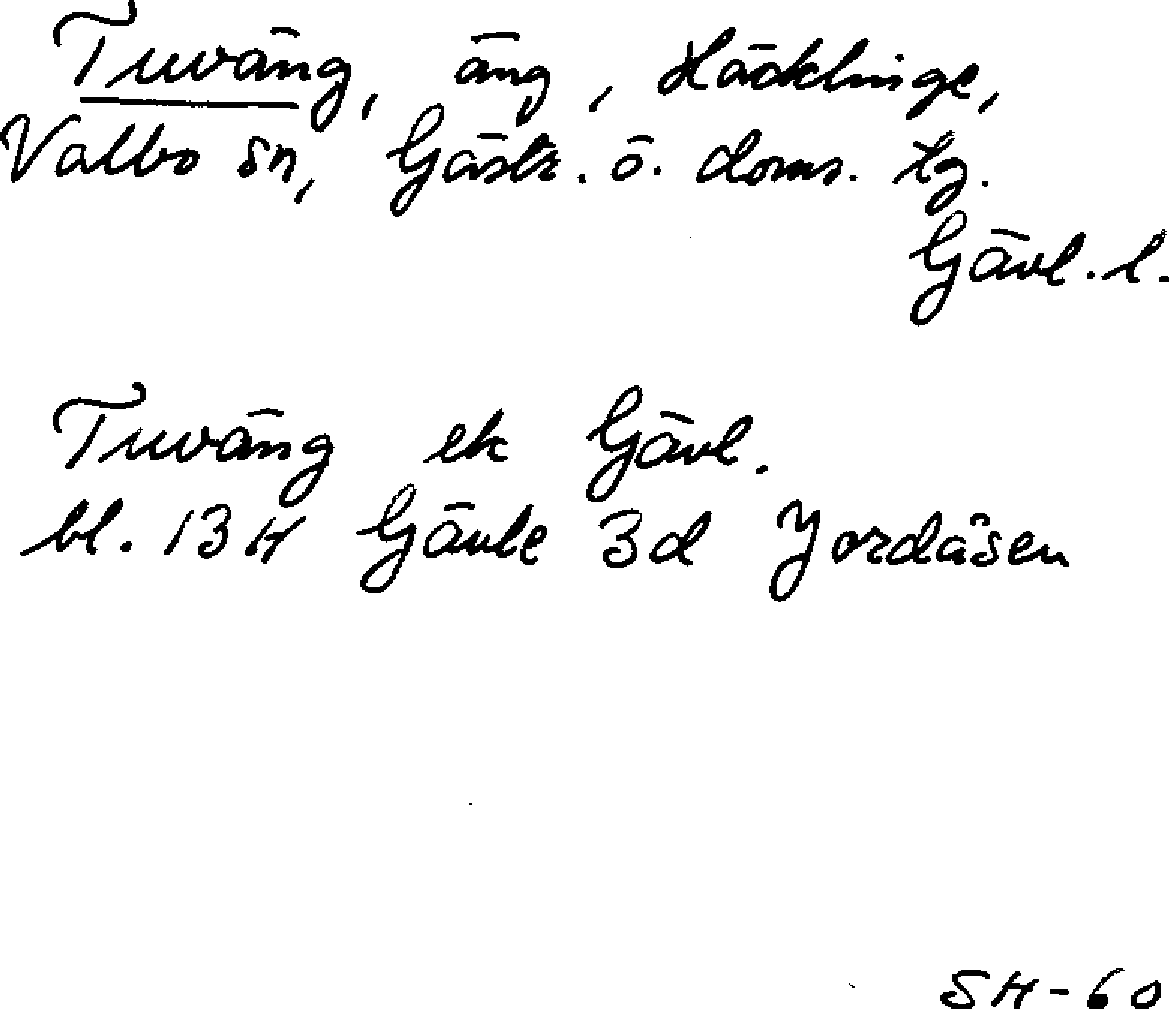 Tuväng, äng, Häcklinge,
Valbo sn, Gästr. ö. doms. tg.
Gävl. l.
Tuväng ek Gävl.
bl. 13H Gävle 3d Jordåsen
SH-60